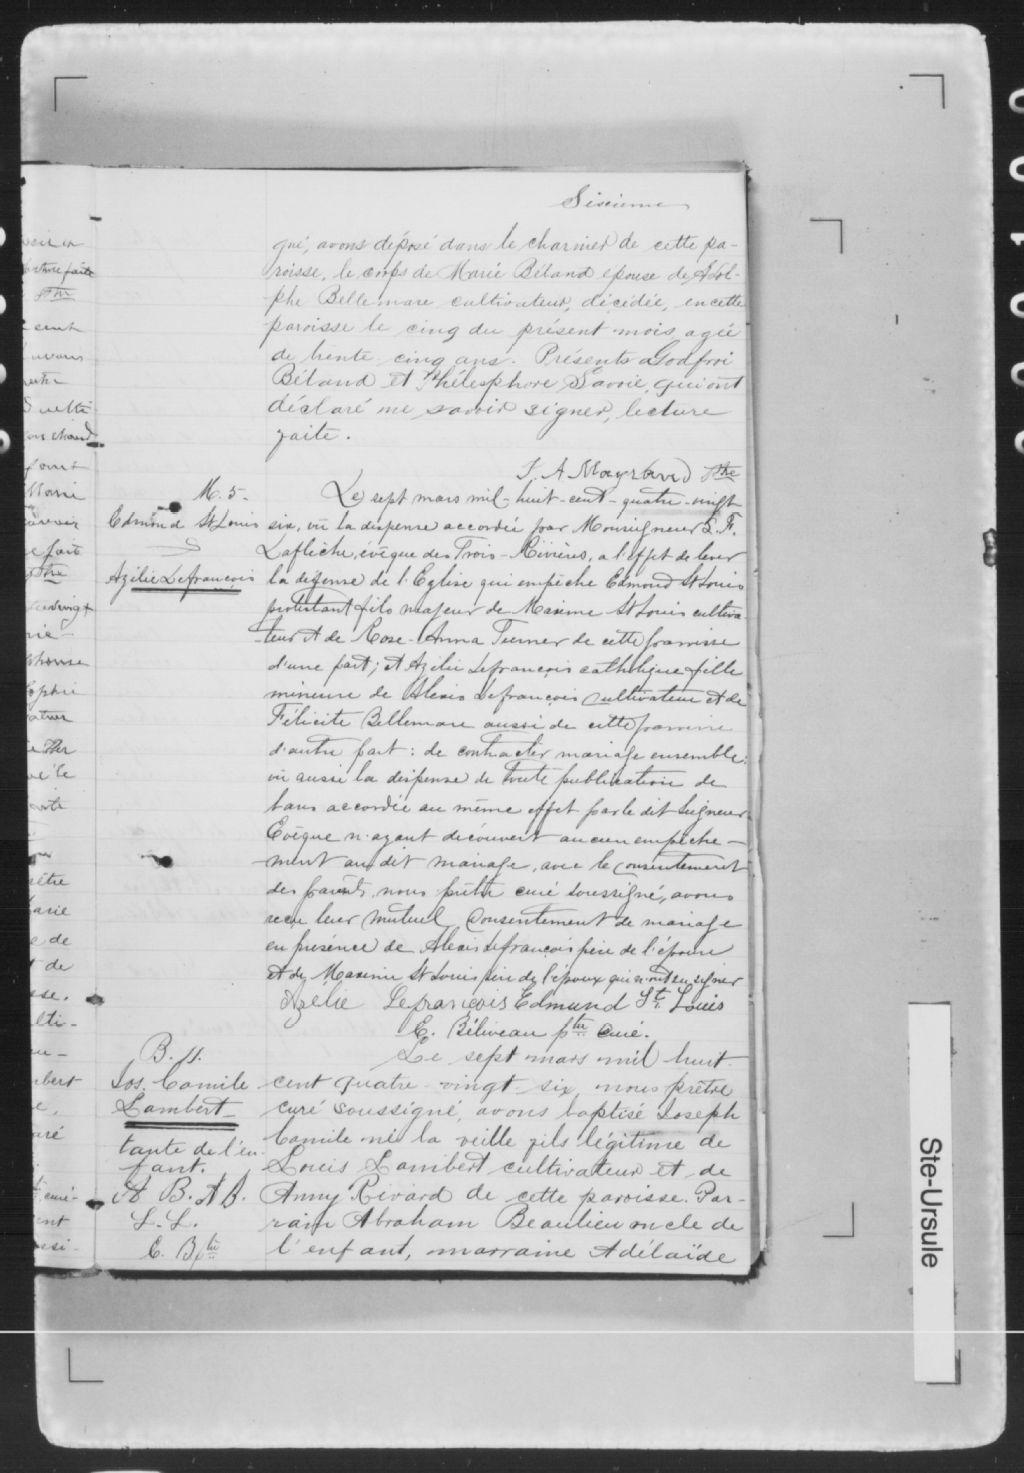 Sixième
qué, avons déposé dans le charnier de cette pa-
roisse, le corps de Marie Béland épouse de Adol-
phe Bellemare cultivateur, décédée, en cette
paroisse le cinq du présent mois agée
de trente-cinq ans. Présents Godfroi
Béland et Thélesphore Savoie, qui ont
déclaré ne savoir signer, lecture
faite.
J. A. Mayrand Ptre
M. 5.
Edmond St Louis
Azilie Lefrançois
Le sept mars mil-huit-cent-quatre-vingt
six, vu la dispense accordée par Monseigneur L. F.
Laflèche, évêque des Trois-Rivières, a l'effet de lever
la défense de l'Eglise qui empêche Edmond St Louis
protestant fils majeur de Maxime St Louis cultiva-
teur et de Rose-Anna Turner de cette paroisse
d'une part; et Azilie Lefrançois catholique fille
mineure de Alexis Lefrançois cultivateur et de
Félicite Bellemare aussi de cette paroisse
d'autre part: de contracter mariage ensemble;
vu aussi la dispense de toute publication de
bans accordée au même effet par le dit Seigneur
Evêque n'ayant découvert aucun empêche-
ment au dit mariage, avec le consentement
des parents, nous prêtre curé soussigné, avons
reçu leur mutuel consentement de mariage
en présence de Alexis Lefrançois père de l'épouse
et de Maxime St Louis père de l'époux qui n'ont su signer
Azelie Lefrançois Edmund St. Louis
E. Béliveau ptre curé.
B. 11.
Jos. Camile
Lambert
Le sept mars mil huit
cent quatre-vingt-six, nous prêtre
curé soussigné, avons baptisé Joseph
Camile né la veille fils légitime de
Louis Lambert cultivateur et de
Anny Rivard de cette paroisse. Par-
rain Abraham Beaulieu oncle de
l'enfant, marraine Adélaïde
tante de l'en-
fant.
A B. A B.
L. L.
E. B ptre
Ste-Ursule